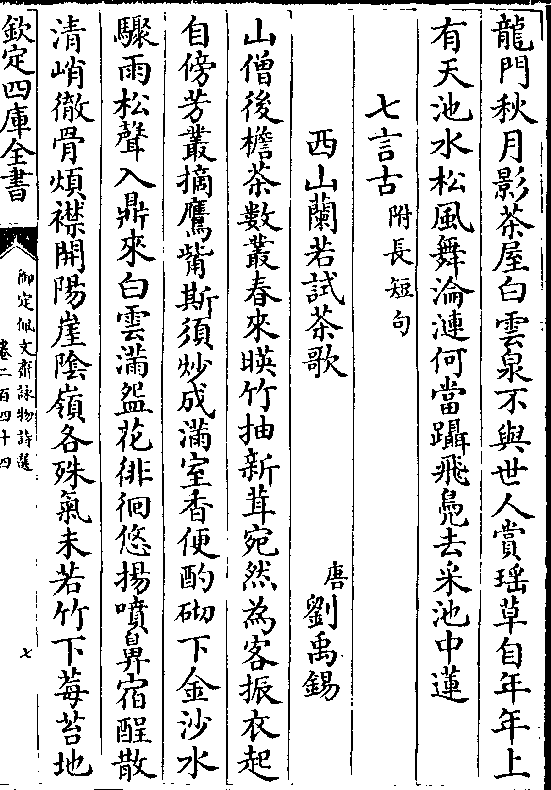 龍門秋月影茶屋白雲泉不與世人賞瑶草自年年上
有天池水松風舞淪漣何當躡飛鳧去采池中蓮
七言古附長短句
西山蘭若試茶歌 唐劉禹錫
山僧後檐茶數叢春來暎竹抽新茸宛然為客振衣起
自傍芳叢摘鷹觜斯須炒成滿室香便酌砌下金沙水
驟雨松聲入鼎來白雲滿盌花徘徊悠揚噴鼻宿酲散
清峭徹骨煩襟開陽崖陰嶺各殊氣未若竹下莓苔地
欽定四庫全書
御定佩文齋詠物詩選
卷二百四十四
七